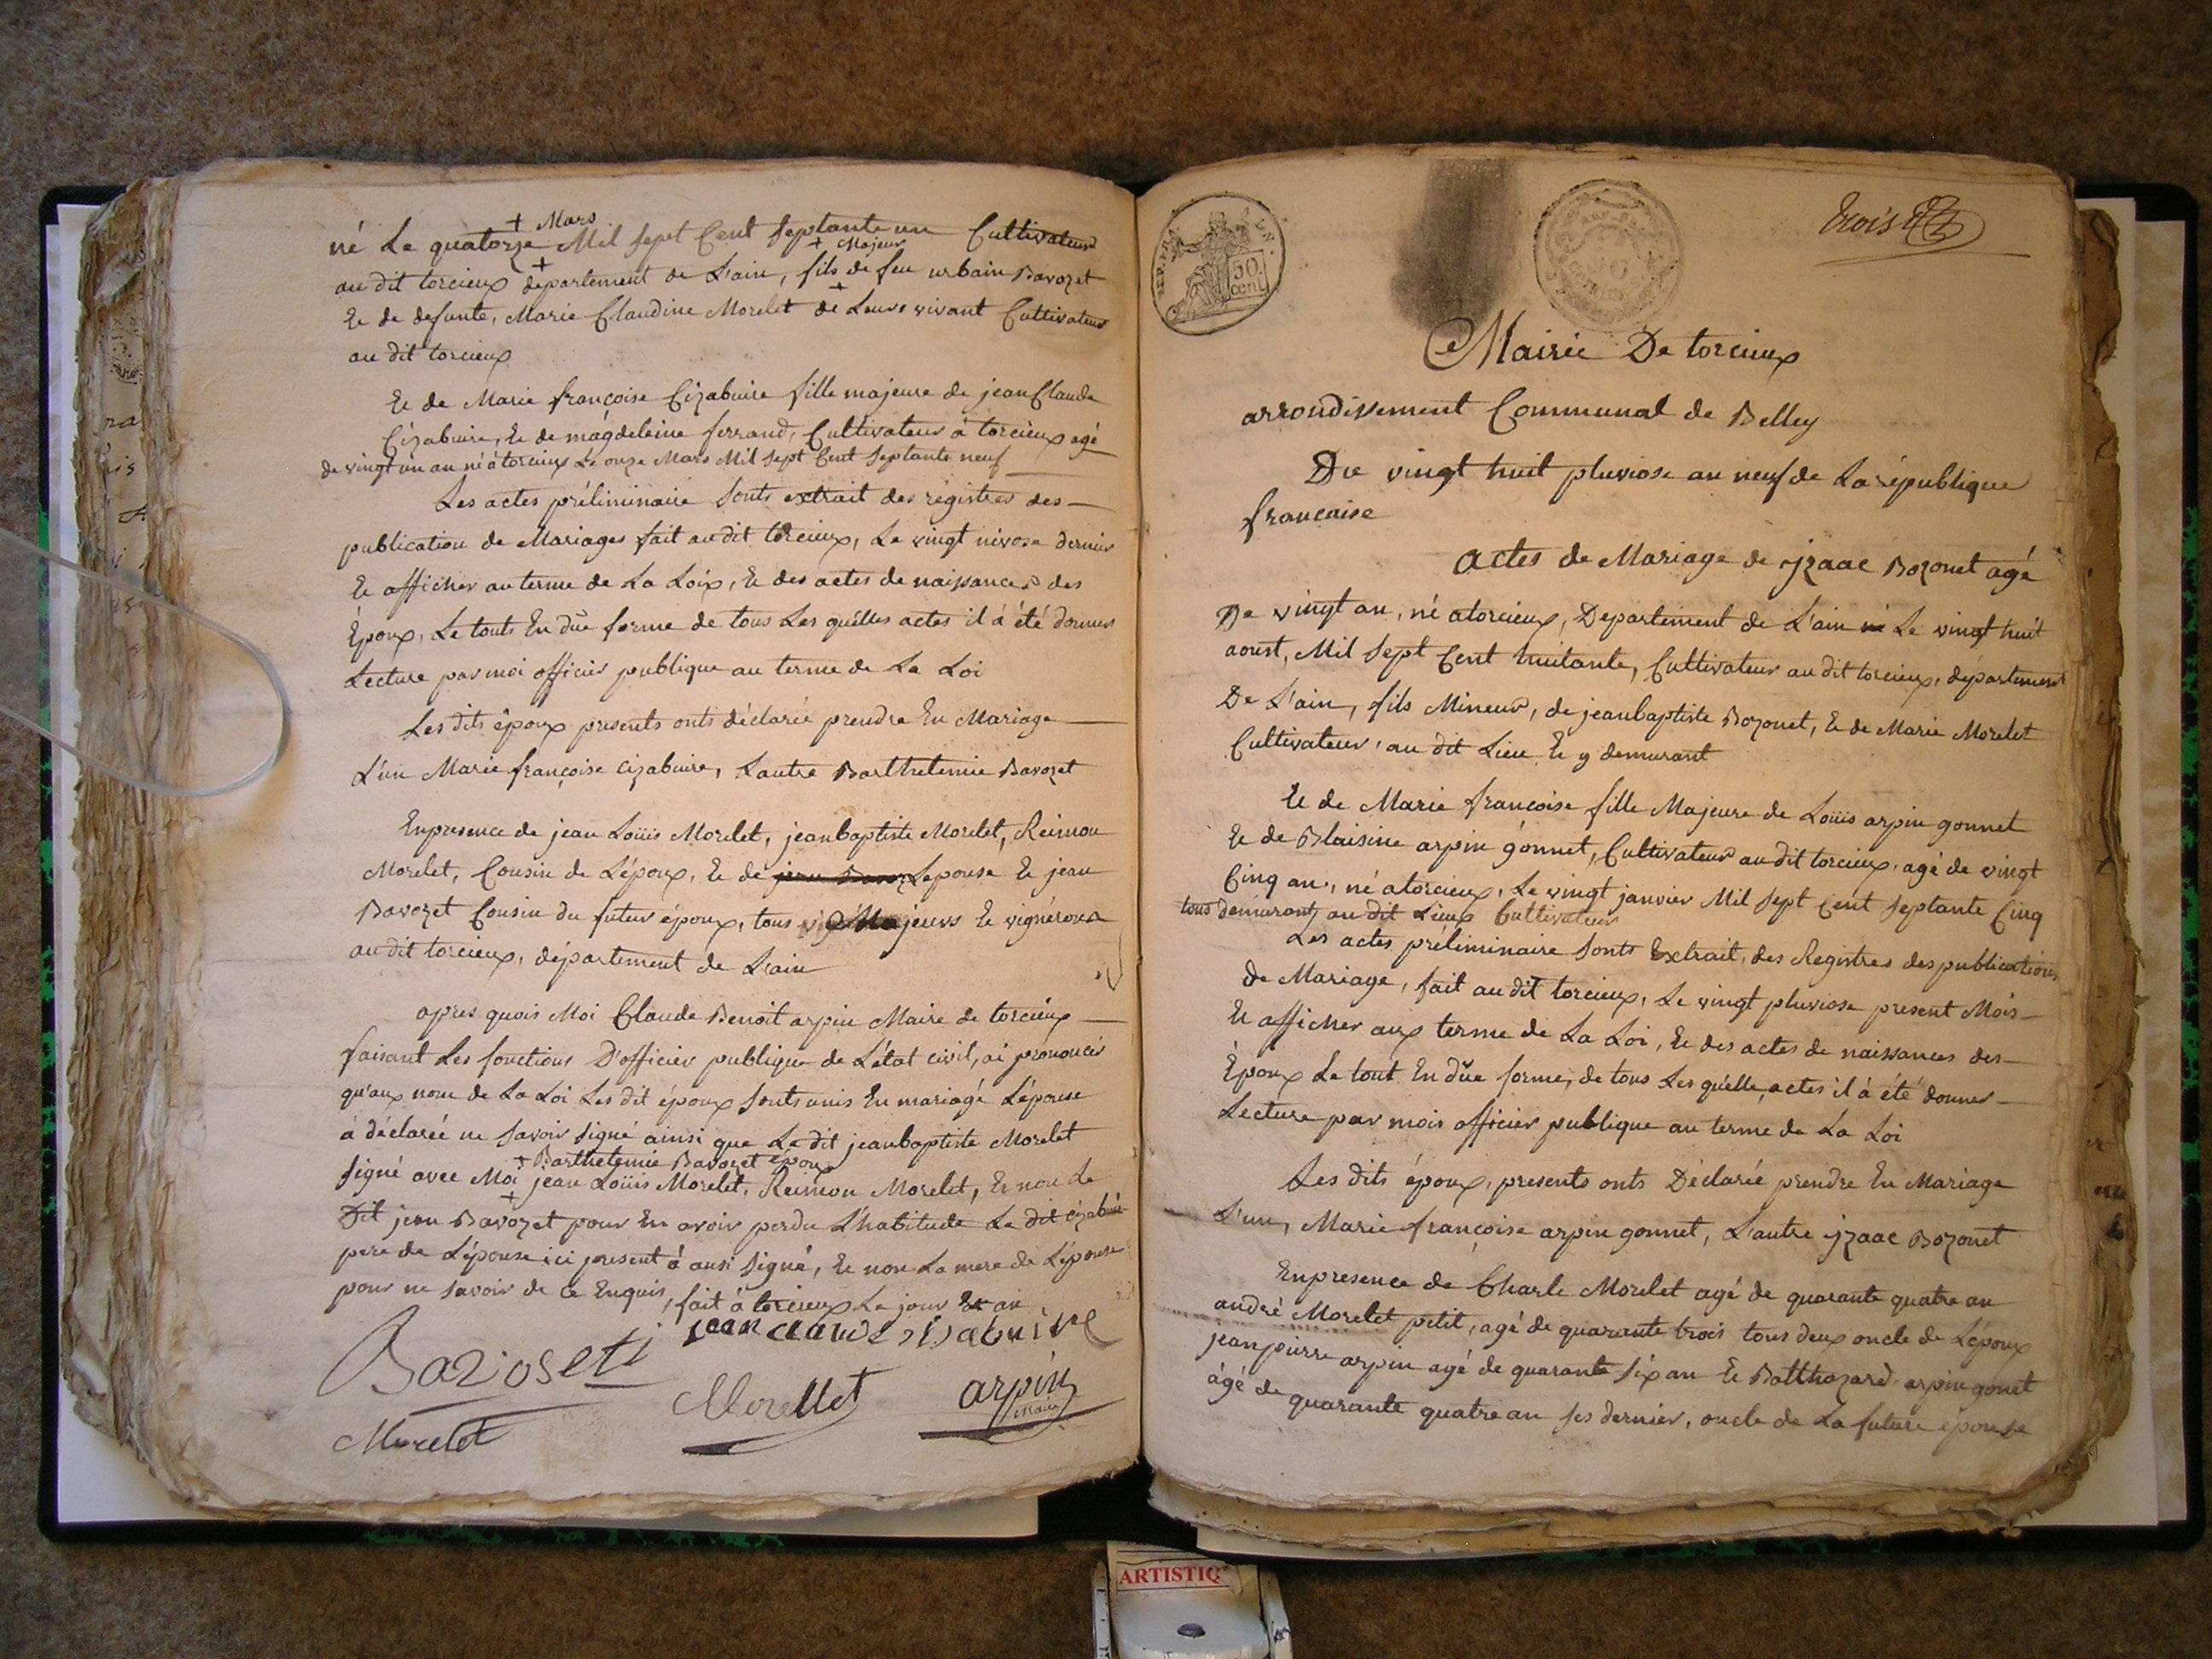 né Le quatorze + Mars Mil sept Cent septante un Cultivateur
au dit torcieux + département de L'ain, + Majeur fils de feu urbain Bavozet
Et de defunte, Marie Claudine Morelet + de Leurs vivant Cultivateur
au dit torcieux
Et de Marie françoise Cizabuire fille majeure de jean Claude
Cizabuire, Et de magdeleine ferrand, Cultivateur à torcieux agé
de vingt un an né à torcieux Le onze Mars Mil sept Cent septante neuf
Les actes préliminaire sonts extrait des régistres des
publication de Mariages fait au dit torcieux, Le vingt nivose dernier
Et afficher au terme de La Loix, Et des actes de naissances des
Époux, Le touts En dûe forme de tous Les quelles actes il à été donner
Lecture par moi officier publique au terme de La Loi
Les dits époux presents onts déclarée prendre En Mariage
L'un Marie françoise cizabuire, Lautre Barthelemie Bavozet
En presence de jean Loüis Morelet, jean baptiste Morelet, Reimon
Morelet, Cousin de Lépoux, Et de Lepouse Et jean
Bavozet Cousin du futur époux, tous Majeurs Et vignérons
au dit torcieux, département de Lain
apres quois Moi Claude Benoit arpin Maire de torcieux
faisant Les fonctions D'officier publique de L'état civil, ai prononcér
qu'aux nom de La Loi Les dit époux sonts unis En mariagé Lépouse
à déclarée ne savoir signé ainsi que Le dit jean baptiste Morelet
+ Barthelemie Bavozet époux
signé avec Moi jean Loüis Morelet, Reimon Morelet, Et non Le
Dit jean Bavozet pour En avoir perdu L'habitude Le dit cizabuire
pere de Lépouse ici present à ausi signé, Et non La mere de Lépouse
pour ne savoir de Ce Enquis, fait à torcieux Le jour Et an
jean claude sisabuire
Bavoset
Morellet
arpin
Maire
Morelet
50
cent
trois
Mairie De torcieux
arrondissement Communal de Belley
Du vingt huit pluviose an neuf de La république
francaise
actes de Mariage de jzaac Bozonet agé
De vingt an, né a torcieux, Departement de L'ain né Le vingt huit
aoust, Mil sept Cent huitante, Cultivateur au dit torcieux, département
De L'ain, fils Mineur, de jean baptiste Bozonet, Et de Marie Morelet
Cultivateur, au dit Lieu Et y demurant
Et de Marie françoise fille Majeure de Loüis arpin gonnet
Et de Blaisine arpin gonnet, Cultivateur au dit torcieux, agé de vingt
Cinq an, né a torcieux, Le vingt janvier Mil sept Cent septante Cinq
tous demurant au dit Lieux Cultivateur
Les actes préliminaire sonts Extrait, des Registres des publications
de Mariage, fait au dit torcieux, Le vingt pluviose present Mois
Et afficher aux terme de La Loi, Et des actes de naissances des
Époux Le tout En dûe forme, de tous Les quelle, actes il à été donner
Lecture par mois officier publique au terme de La Loi
Les dits époux, presents onts Déclarée prendre En Mariage
L'un, Marie françoise arpin gonnet, L'autre jzaac Bozonet
En presence de Charle Morelet agé de quarante quatre an
andré Morelet petit, agé de quarante trois tous deux oncle de Lépoux
jean pierre arpin agé de quarante six an Et Balthazard arpin gonet
âgé de quarante quatre an ses dernier, oncle de La future épouse
ARTISTIQ